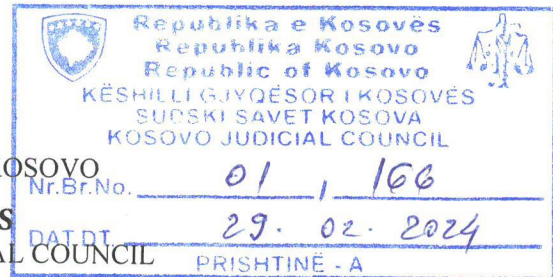 Republika e Kosovës
Republika Kosovo
Republic of Kosovo
KËSHILLI GJYQËSOR I KOSOVËS
SUDSKI SAVET KOSOVA
KOSOVO JUDICIAL COUNCIL
KOSOVO
Nr.Br.No. 01 , 166
S
DAT.DT. 29. 02. 2024
AL COUNCIL
PRISHTINË - A